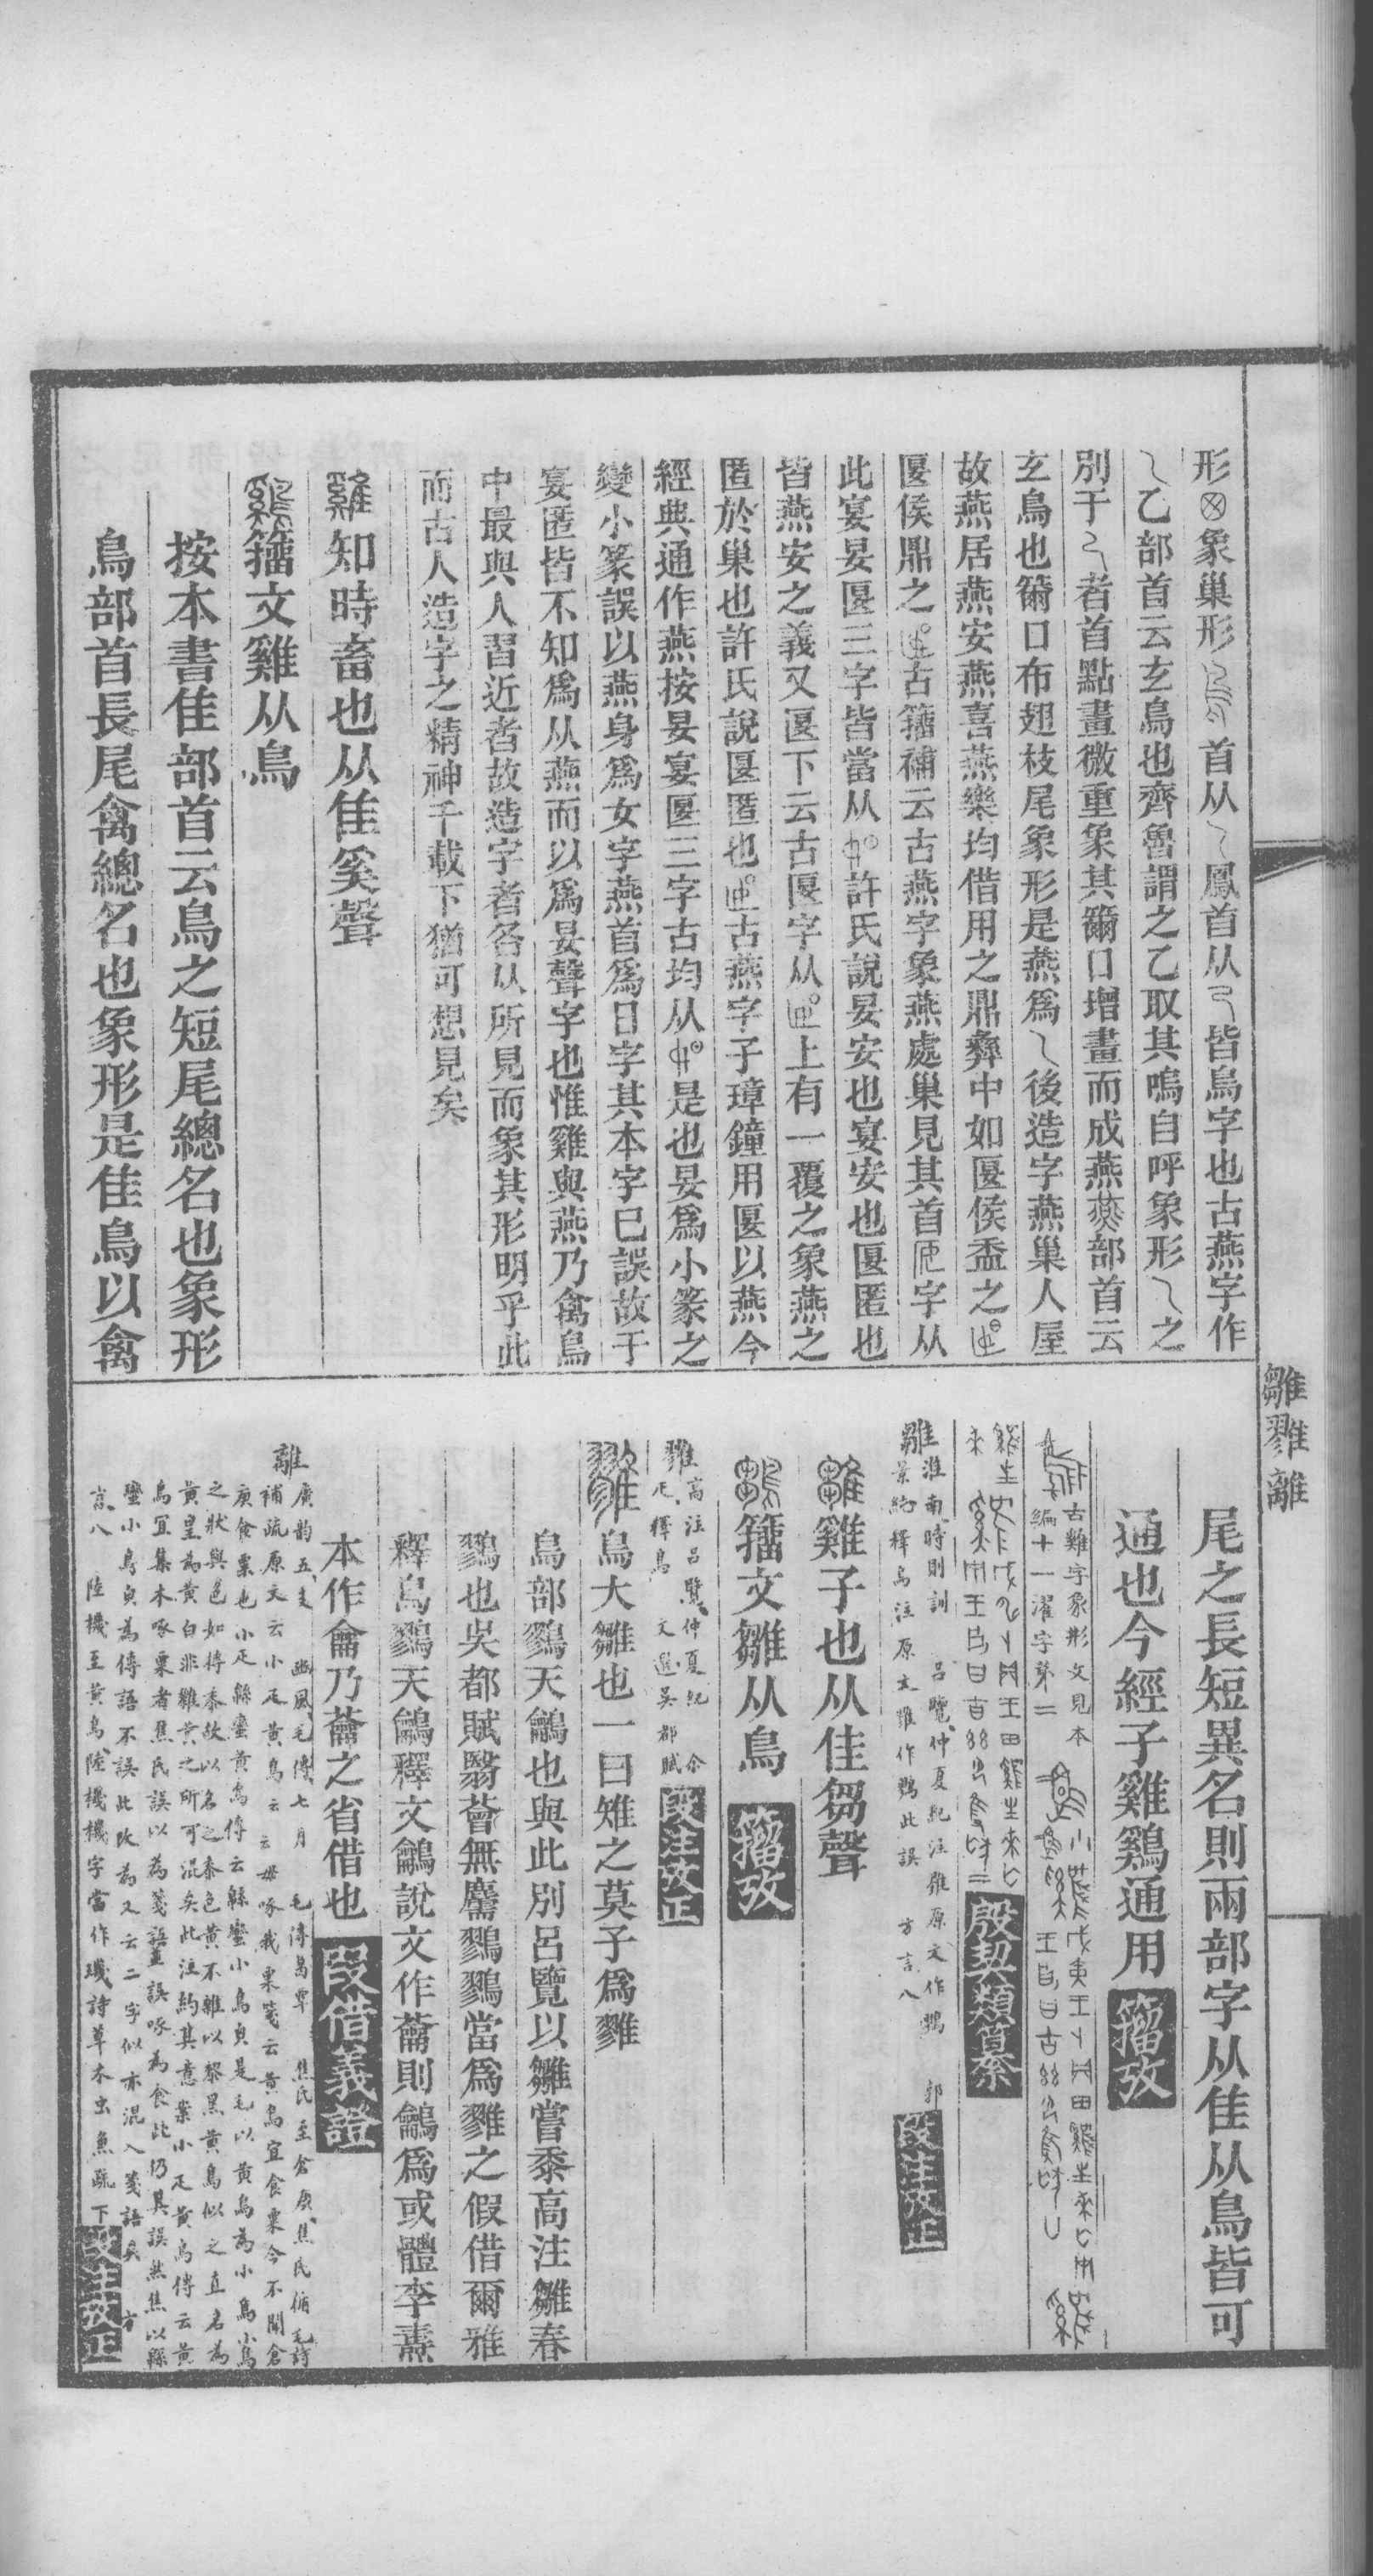 形象巢形首从鳳首从皆鳥字也古燕字作
乙部首云玄鳥也齊魯謂之乙取其鳴自呼象形之
別于者首點畫微重象其籋口增畫而成燕燕部首云
玄鳥也籋口布翅枝尾象形是燕爲後造字燕巢人屋
故燕居燕安燕喜燕樂均借用之鼎彝中如匽侯盉之
匽侯鼎之古籒補云古燕字象燕處巢見其首字从
此宴晏匽三字皆當从許氏說晏安也宴安也匽匿也
皆燕安之義又匽下云古匽字从上有一覆之象燕之
匿於巢也許氏說匽匿也古燕字子璋鐘用匽以燕今
經典通作燕按晏宴匽三字古均从是也晏爲小篆之
變小篆誤以燕身爲女字燕首爲日字其本字已誤故于
宴匽皆不知爲从燕而以爲晏聲字也惟雞與燕乃禽鳥
中最與人習近者故造字者各从所見而象其形明乎此
而古人造字之精神千載下猶可想見矣
雞知時畜也从隹奚聲
鷄籒文雞从鳥
按本書隹部首云鳥之短尾總名也象形
鳥部首長尾禽總名也象形是隹鳥以禽
雛雡離
尾之長短異名則兩部字从隹从鳥皆可
通也今經子雞鷄通用 籒攷
古雞字象形文見本
編十一濯字第二
殷契類篹
雛淮南時則訓 呂覽仲夏紀注雛原文作鶵 郭
景純釋鳥注原文雛作鶵此誤 方言八 段注攷正
雛雞子也从隹芻聲
鶵籒文雛从鳥 籒攷
雡高注呂覽仲夏紀
釋鳥 文選吳都賦 段注攷正
雡鳥大雛也一曰雉之莫子爲雡
鳥部鷚天鸙也與此別呂覽以雛嘗黍高注雛春
鷚也吳都賦翳薈無麡鷚鷚當爲雡之假借爾雅
釋鳥鷚天鸙釋文鸙說文作蘥則鸙爲或體李燾
本作龠乃蘥之省借也 段借義證
離廣韵五支 豳風毛傳七月 毛傳葛覃 焦氏至倉庚焦氏循毛詩
補疏原文云小疋黃鳥云毋啄我粟箋云黃鳥宜食粟今不聞倉
庚食粟也小疋緜蠻黃鳥傳云緜蠻小鳥皃是毛以黃鳥爲小鳥小鳥
之狀與色如摶黍故以名之黍色黃不雜以黎黑黃鳥似之直名爲
黃皇爲黃白非雞黃之所可混矣此注約其意案小疋黃鳥傳云黃
鳥宜集木啄粟者焦氏誤以爲箋語並誤啄爲食此仍其誤然焦以緜
蠻小鳥皃爲傳語不誤此改爲又云二字似亦混入箋語矣 方
言八 陸機至黃鳥陸機機字當作璣詩草木虫魚疏下 段注攷正